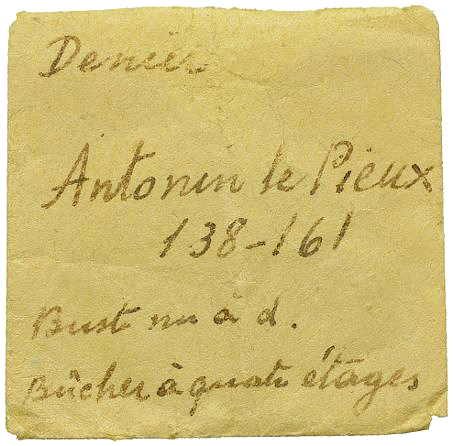 Denier
Antonin le Pieux
138-161
Buste nu à d.
Bûcher à quatre étages